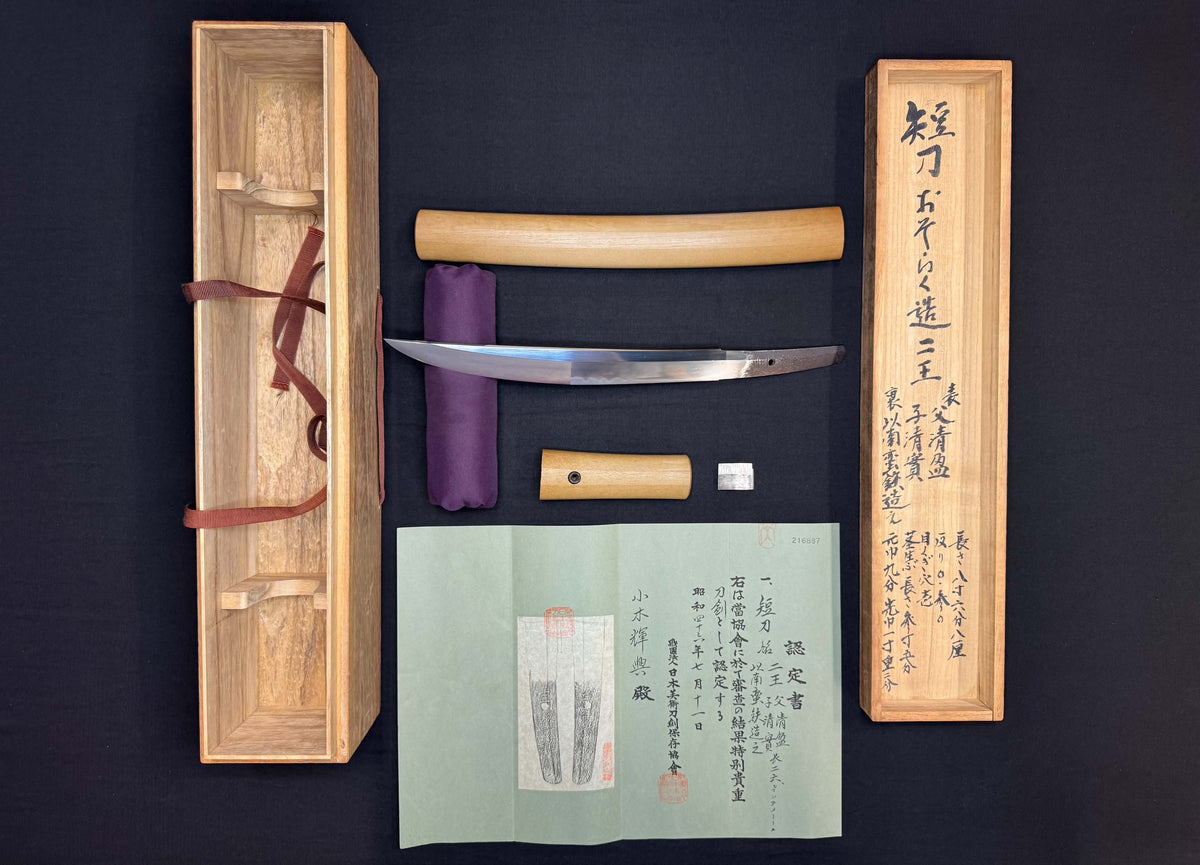 短刀 おそらく造 二王
表 父清盈
子清實
裏 以南蛮鉄造之
長さ 八寸六分八厘
目くぎ穴 壱
茎生ぶ 長さ 参寸五分
元巾 九分 先巾 一寸 重 二分
216887
認定書
一、短刀 銘 二王 父清盈 子清實
以南蛮鉄造之
右は當協會に於て審査の結果特別貴重
刀劍として認定する
昭和四十六年七月十一日
財團法人日本美術刀劍保存協會
小木輝興殿